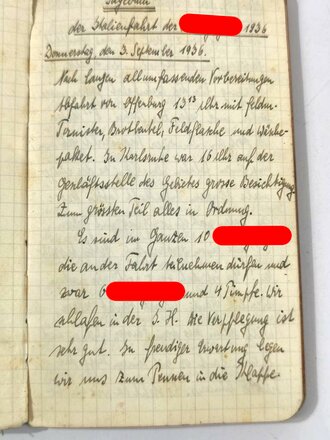 Tagebuch
der Italienfahrt der 1936
Donnerstag den 3. September 1936.
Nach langen allumfassenden Vorbereitungen
Abfahrt von Offenburg 13 13 Uhr mit feldm.
Tornister, Brotbeutel, Feldflasche und Wäsche-
paket. In Karlsruhe war 16 Uhr auf der
Geschäftsstelle des Gebietes grosse Besichtigung
Zum grössten Teil alles in Ordnung.
Es sind im Ganzen 10
die an der Fahrt teilnehmen dürfen und
zwar 6 und 4 Pimpfe. Wir
schlafen in der J. H. Die Verpflegung ist
sehr gut. In freudiger Erwartung legen
wir uns zum Pennen in die Klappe.